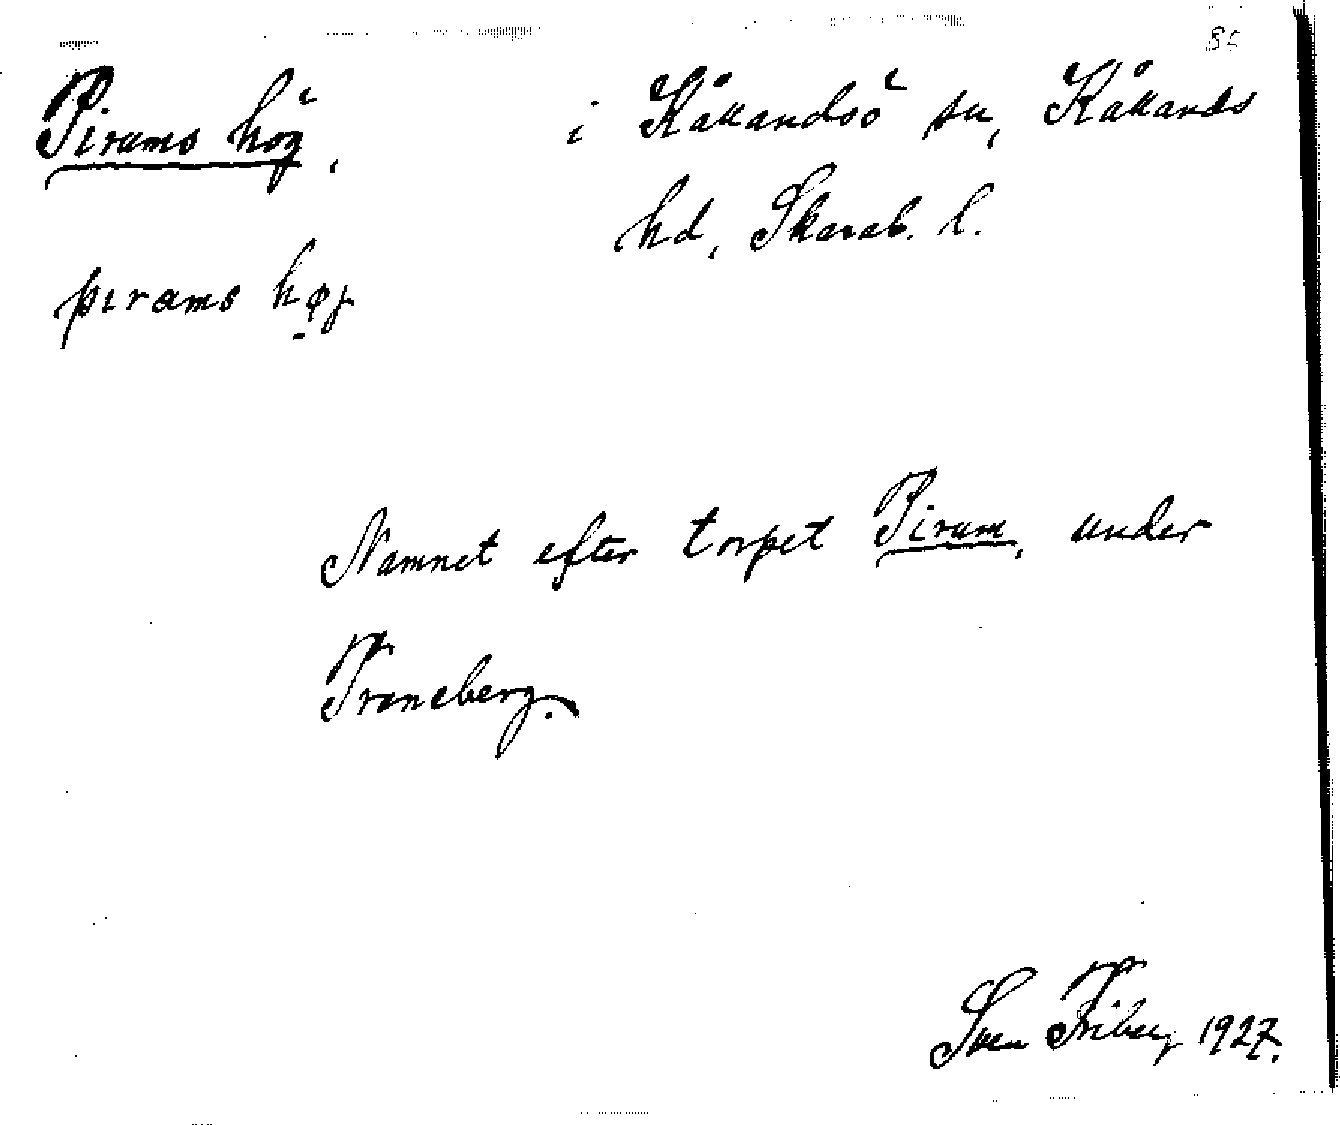 Pirams hög, i Kållandsö sn, Kållands
hd, Skarab. l.
pırams høg
Namnet efter torpet Piram, under
Traneberg.
Sven Friberg 1927.